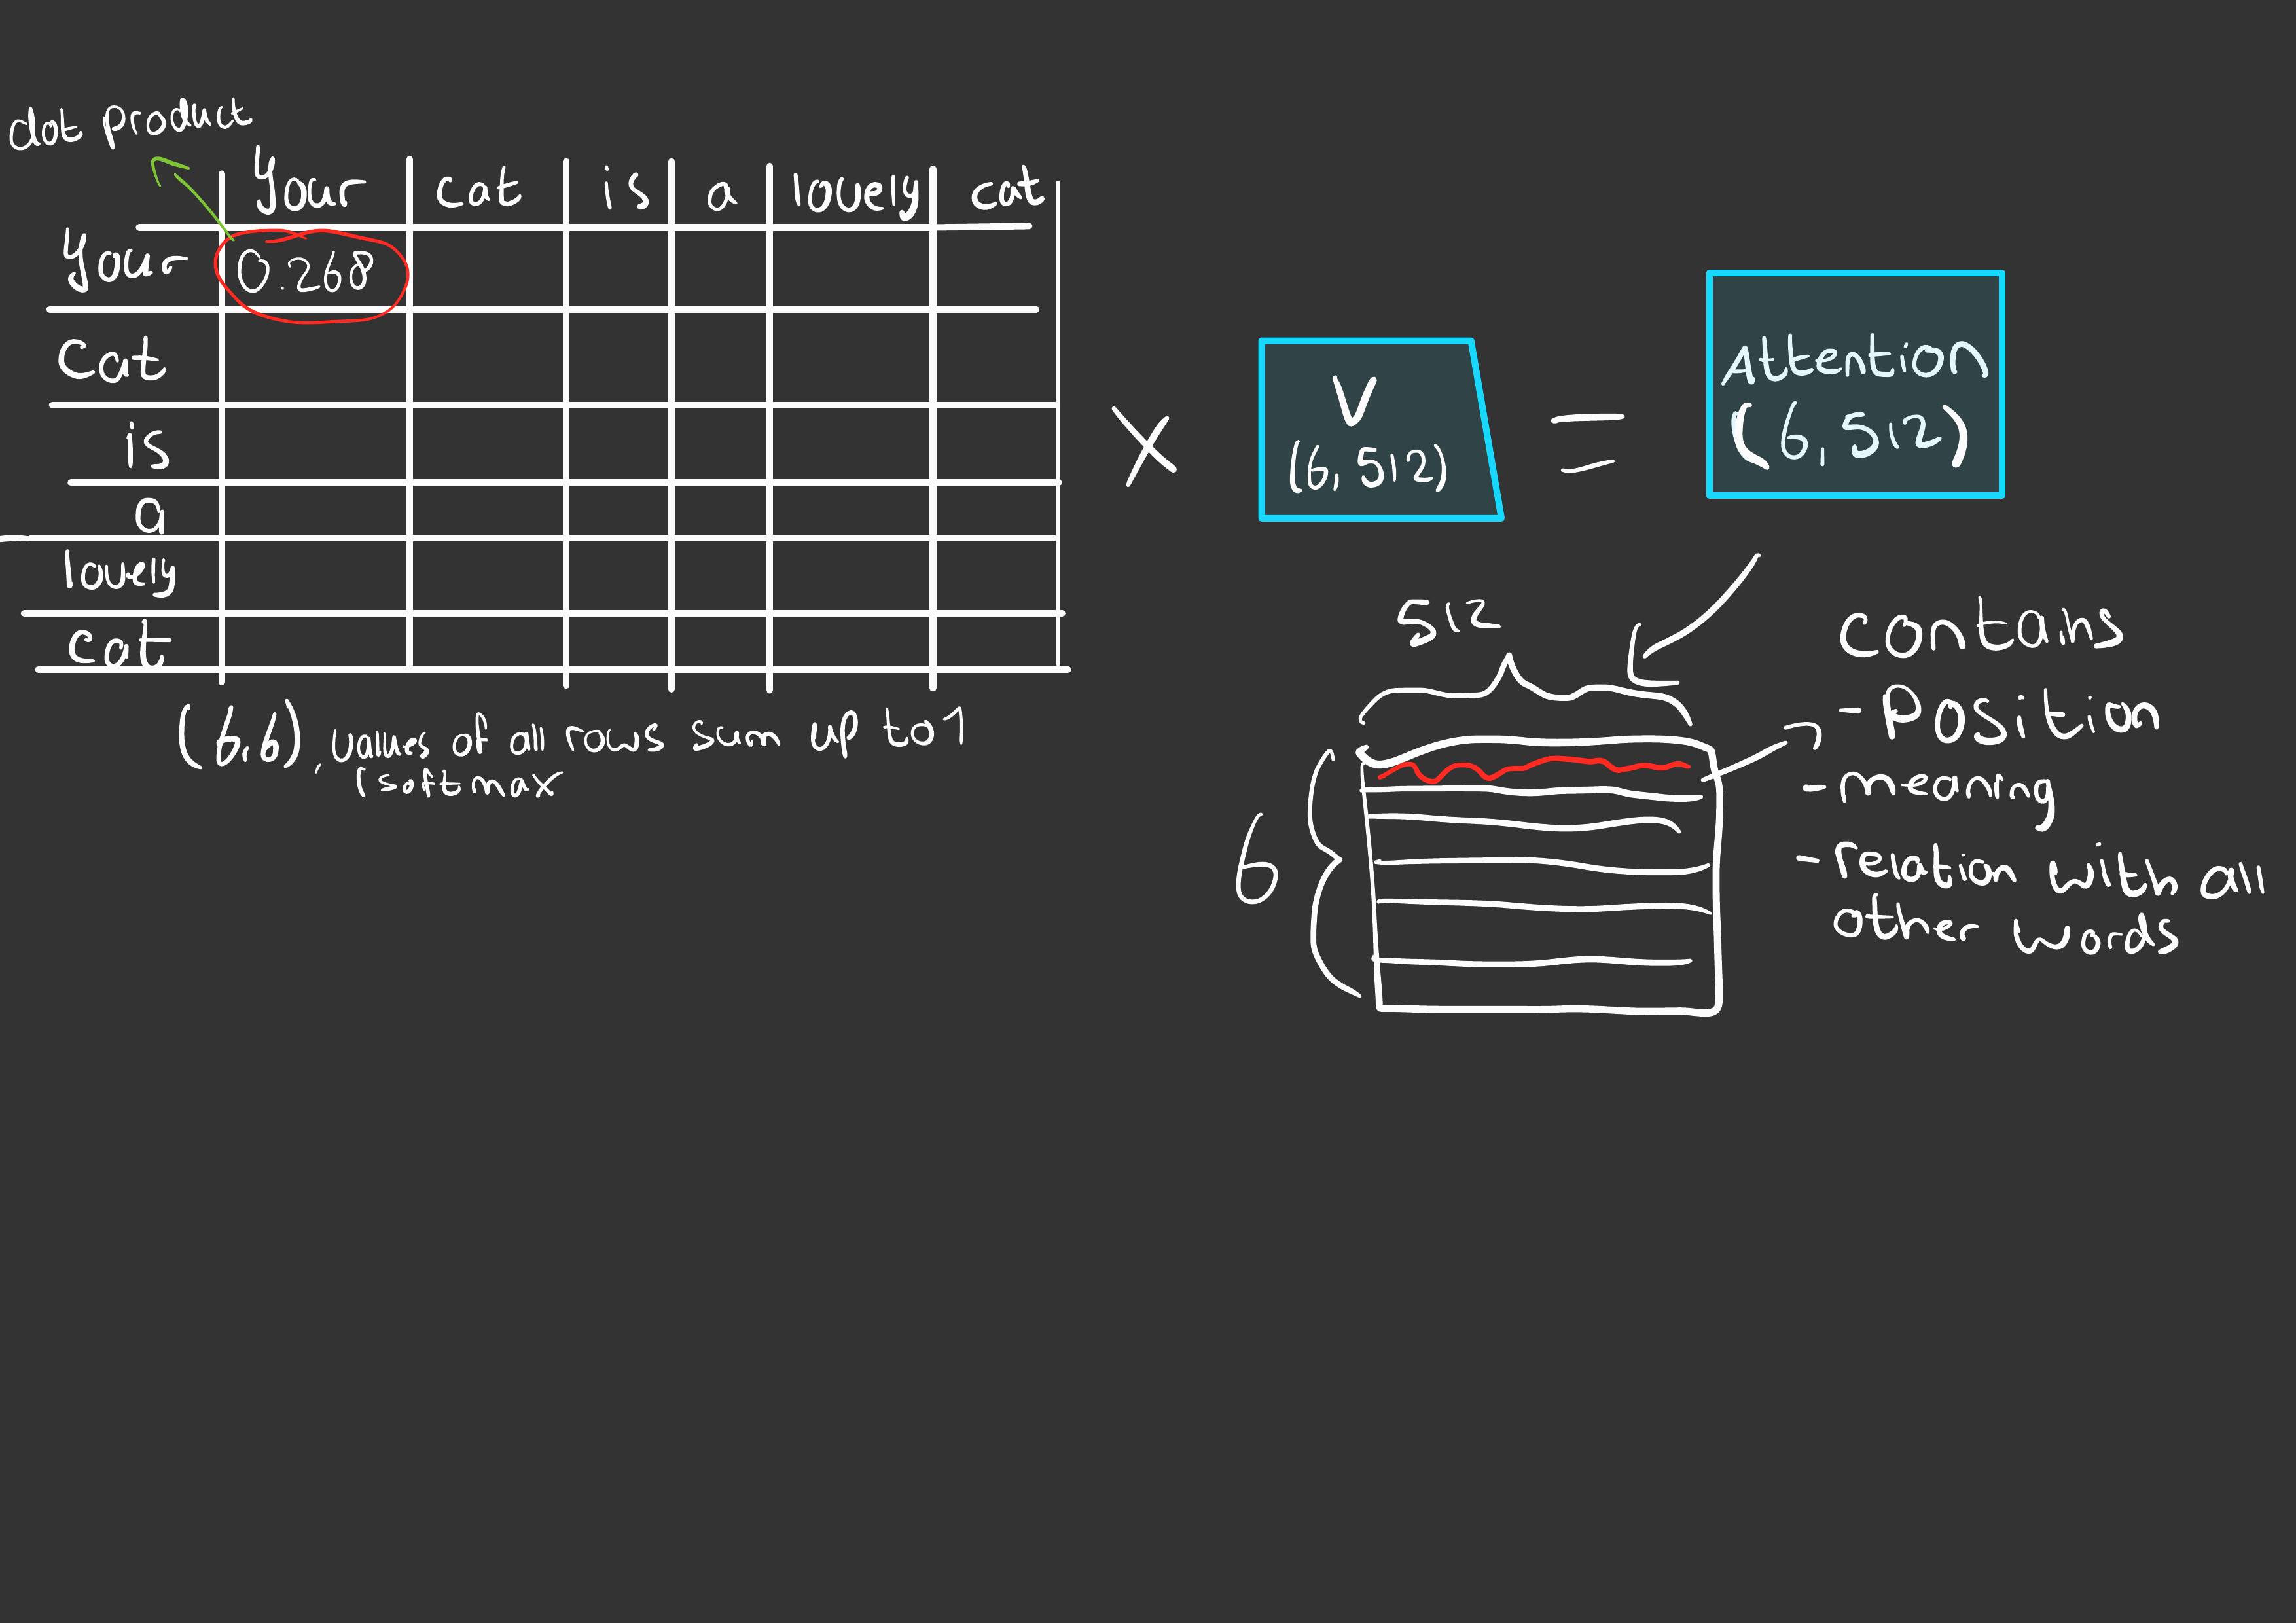 dot product
Your cat is a lovely cat
Your 0.268
Cat
is
a
lovely
cat
(6,6), values of all rows sum up to 1
(softmax
X
V
(6, 512)
=
Attention
(6, 512)
512
6
Contains
- Position
- meaning
- relation with all
other words